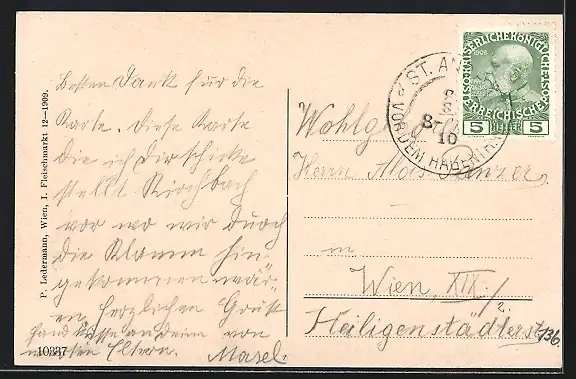 Besten Dank für die
Karte. Diese Karte
die ich Dir schicke
stellt Kirchbach
vor wo wir durch
die Klamm hin-
gekommen wär-
en herzlichen Gruß
Handküsse an deine von
Eltern. Masel.
10337
P. Ledermann, Wien, I. Fleischmarkt 12–1909.
KAISERLICHE KÖNIGLICHE ÖSTERREICHISCHE
1908
5 HELLER 5
ST. AN
VOR DEM HAGENTHAL
10
Wohlg
Herrn
in
Wien XIX/2
Heiligenstädterstr
136